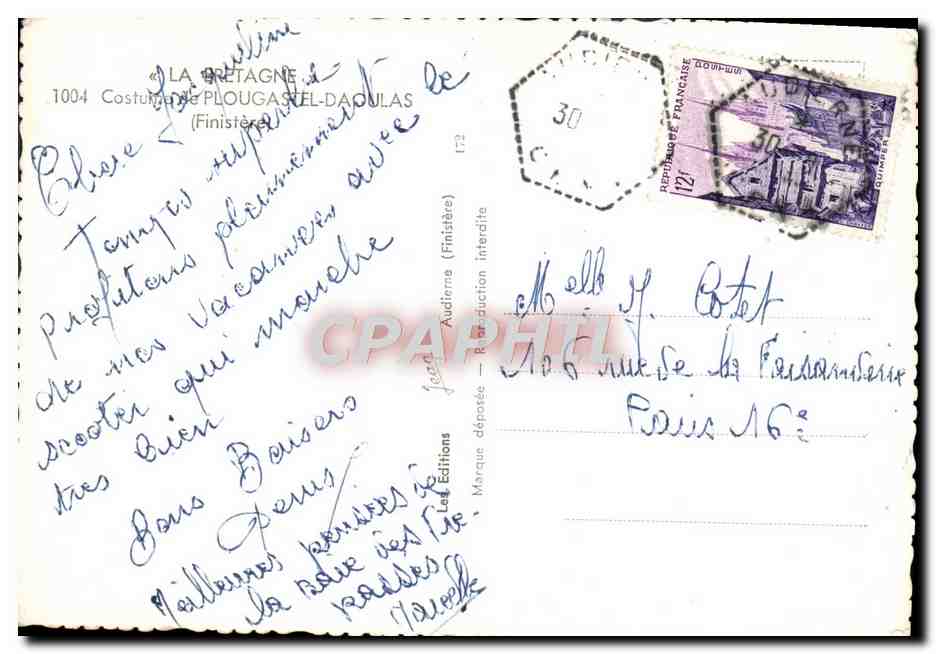 « LA BRETAGNE »
1004 Costume de PLOUGASTEL-DAOULAS
(Finistère)
Chère Jacqueline
Temps superbe
profitons pleinement de
de nos vacances avec le
scooter qui marche
tres bien
Bons Baisers
Denis
Meilleures pensées de
la Baie des Tré-
passés
Marcelle
172
Les Editions Jean Audierne (Finistère)
Marque déposée — Reproduction interdite
30
REPUBLIQUE FRANÇAISE
POSTES
12F
QUIMPER
30
Melle J. Cotet
106 rue de la Faisanderie
Paris 16e
CPAPHIL